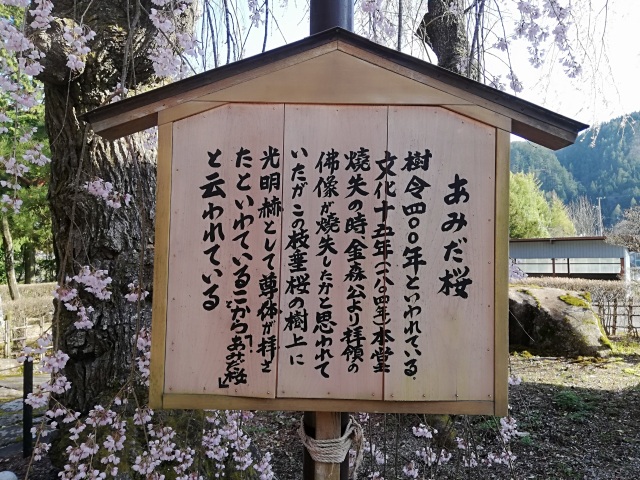 あみだ桜
樹令四〇〇年といわれている。
文化十五年(一八〇四年)本堂
焼失の時金森公より拝領の
佛像が焼失したかと思われて
いたがこの枝垂桜の樹上に
光明赫として尊体が拝さ
たといわているこことから「あみだ桜」
と云われている